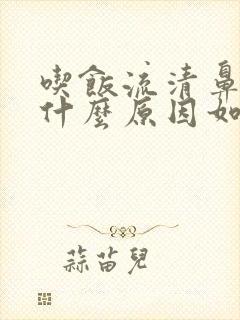 喫飯流清鼻
什麼原因如
蒜苗兒